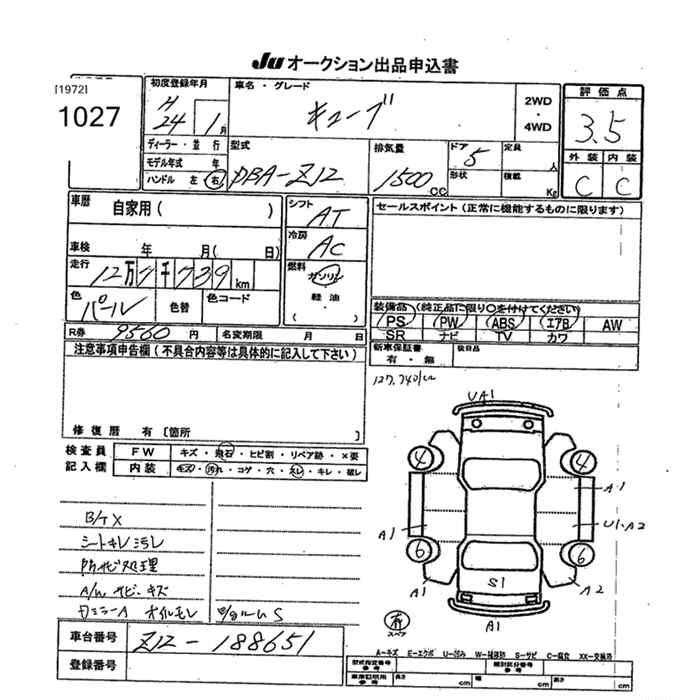 JU オークション出品申込書
[1972]
1027
初度登録年月
H
24 1月
ディーラー・並行
モデル年式 年
ハンドル 左 右
車名・グレード
キューブ
2WD
・
4WD
評価点
3.5
外装 内装
C C
型式
DBA-Z12
排気量
1500 CC
ドア 5
形状
定員 人
積載 Kg
車歴
自家用( )
車検 年 月( 日)
走行
12万7千739km
色
パール
色替
色コード
シフト
AT
冷房
AC
燃料
ガソリン
軽油
( )
セールスポイント(正常に機能するものに限ります)
装備品(純正品に限り○を付けてください)
PS PW ABS エアB AW
SR ナビ TV カワ
R券 9560 円 名変期限 月 日
新車保証書
有・無
後日品
注意事項申告欄(不具合内容等は具体的に記入して下さい)
修復歴 有〔箇所
127,740km
検査員
記入欄
FW キズ・飛石・ヒビ割・リペア跡・×要
内装 キズ・汚れ・コゲ・穴・スレ・キレ・破レ
シートキレ汚レ
サビ処理
A/W サビ・キズ
オイルモレ
UA1
4 4
A1
A1
U1・A2
6 6
A1
S1
A2
A1
有
スペア
車台番号 Z12-188651
登録番号
A-キズ E-エクボ U-凹み W-補修跡 S-サビ C-腐食 XX-交換済
型式指定番号
参考
類別区分番号
参考
車庫証明用
参考
長さ cm 幅 cm 高さ cm